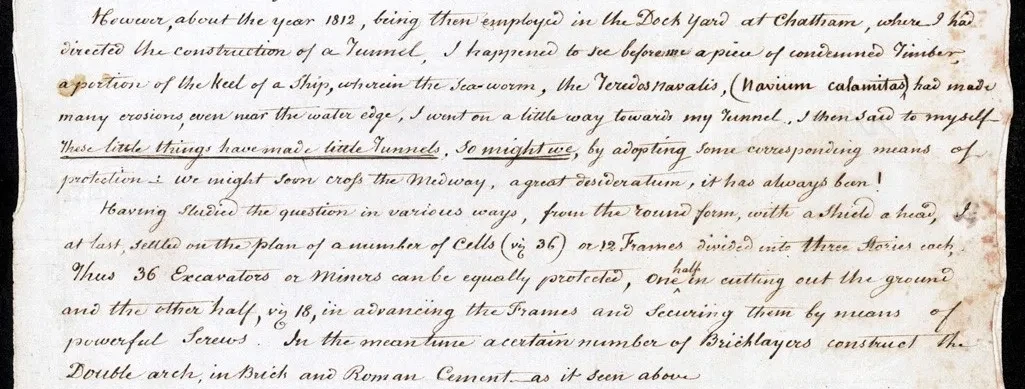 However, about the year 1812, being then employed in the Dock Yard at Chatham, where I had
directed the construction of a Tunnel, I happened to see before me a piece of condemned Timber,
a portion of the keel of a Ship, wherein the sea-worm, the Teredos navalis, (navium calamitas) had made
many erosions, even near the water edge, I went on a little way towards my Tunnel, I then said to myself
These little things have made little Tunnels. So might we, by adopting some corresponding means of
protection: we might soon cross the Medway, a great desideratum, it has always been!
Having studied the question in various ways, from the round form, with a shield a head, I
at last, settled on the plan of a number of Cells (viz 36) or 12 Frames divided into three Stories each.
Thus 36 Excavators or Miners can be equally protected, One half in cutting out the ground
and the other half, viz 18, in advancing the Frames and Securing them by means of
powerful Screws. In the meantime a certain number of Bricklayers construct the
Double arch, in Brick and Roman Cement as it seen above